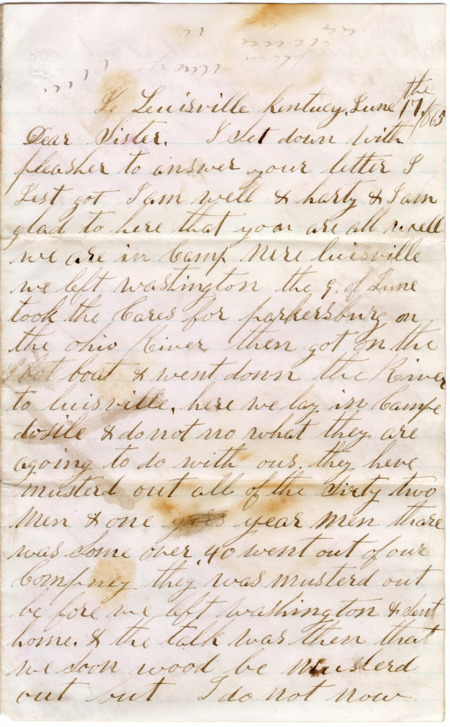 Luisville Kentucy June the 17/1865
Dear Sister. I set down with
pleasher to answer your letter I
Jest got I am well & harty & I am
glad to here that yoor are all well
we are in Camp nere luisville
we left washington the 9. of June
took the Cares for parkersburg on
the ohio River then got on the
boat & went down the River
to luisville. here we lay in Campe
dosile & do not no what they are
agoing to do with ous. they heve
musterd out all of the Sirty two
Men & one year men thare
was some over 40 went out of our
Compney they was musterd out
be fore we left washington & sent
home. & the talk was then that
we soon wood be musterd
out but I do not now